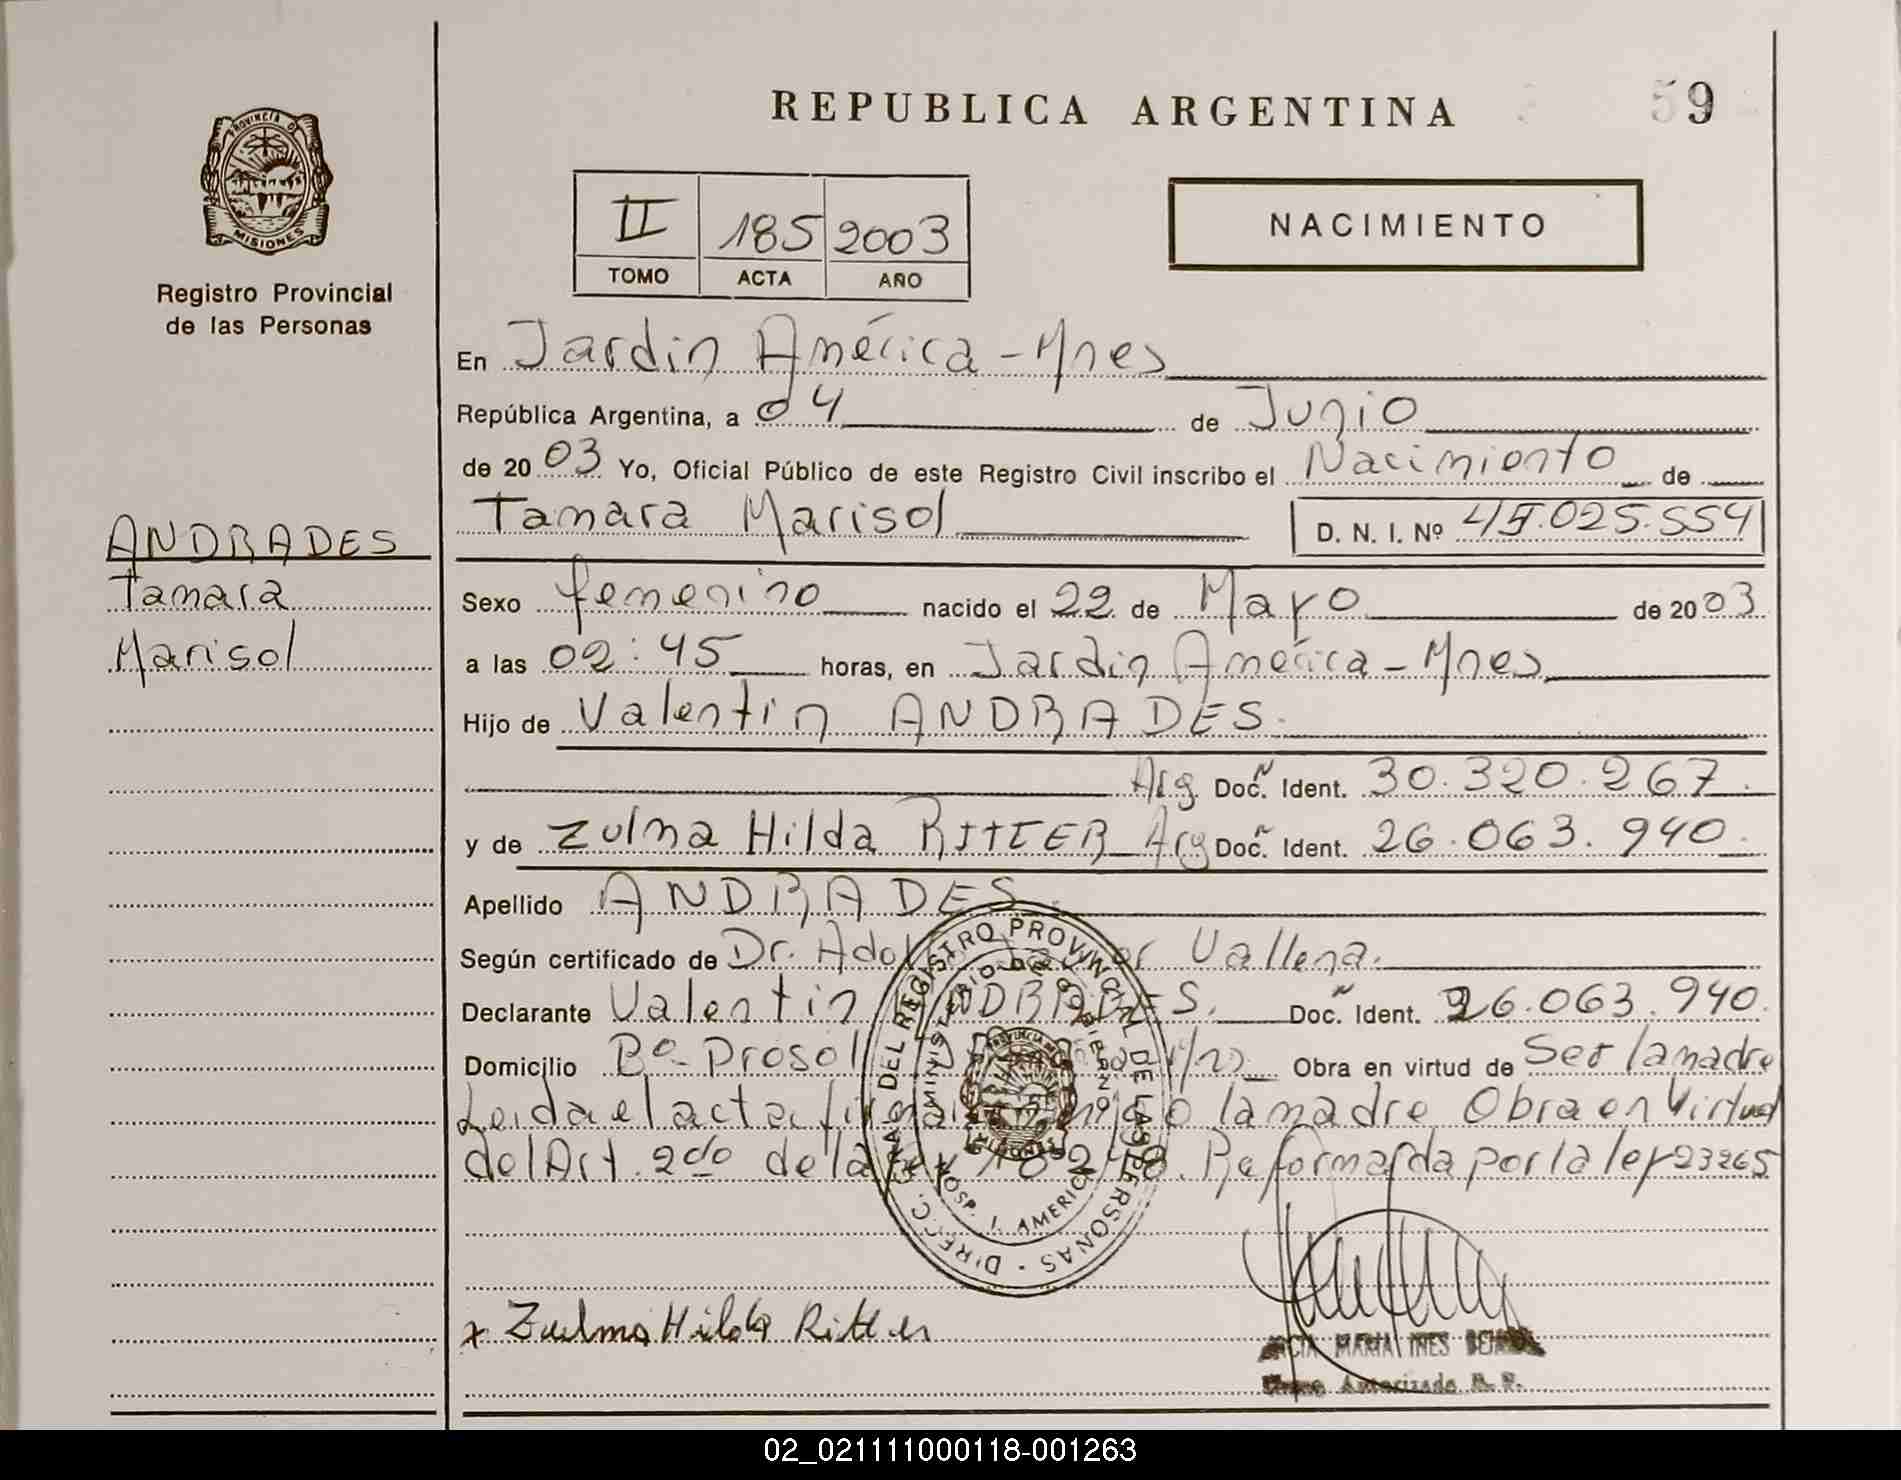 REPUBLICA ARGENTINA
59
PROVINCIA D
MISIONES
Registro Provincial
de las Personas
II 185 2003
TOMO ACTA AÑO
NACIMIENTO
En Jardin América - Mnes
República Argentina, a 04 de Junio
de 2003 Yo, Oficial Público de este Registro Civil inscribo el Nacimiento de
Tamara Marisol D. N. I. Nº 45.025.554
ANDRADES
Tamara
Marisol
Sexo femenino nacido el 22 de Mayo de 2003
a las 02:45 horas, en Jardin América - Mnes
Hijo de Valentin ANDRADES.
Arg. Doc. Ident. 30.320.267.
y de Zulma Hilda RITTER Arg Doc. Ident. 26.063.940.
Apellido ANDRADES.
Según certificado de Dr. Vallena.
Declarante Valentin ANDRADES. Doc. Ident. 26.063.940.
Domicilio Bº Prosol Obra en virtud de Ser la madre
Leida el acta la madre Obra en Virtud
del Art. 2do de la Ley 18248. Reformada por la ley 23265
DIRECC. GRAL. DEL REGISTRO PROVINCIAL DE LAS PERSONAS
MINISTERIO DE GOBIERNO
HOSP. J. AMERICA
x Zulma Hilda Ritter
MARIA INES
Autorizada R. P.
02_021111000118-001263